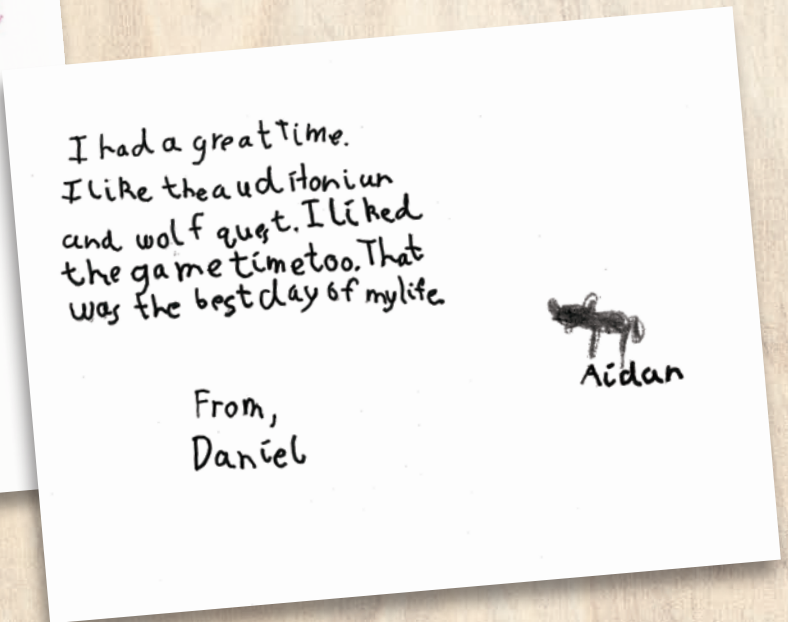 I had a great time.
I like the auditoniun
and wolf quest. I liked
the game time too. That
was the best day of my life.
Aidan
From,
Daniel